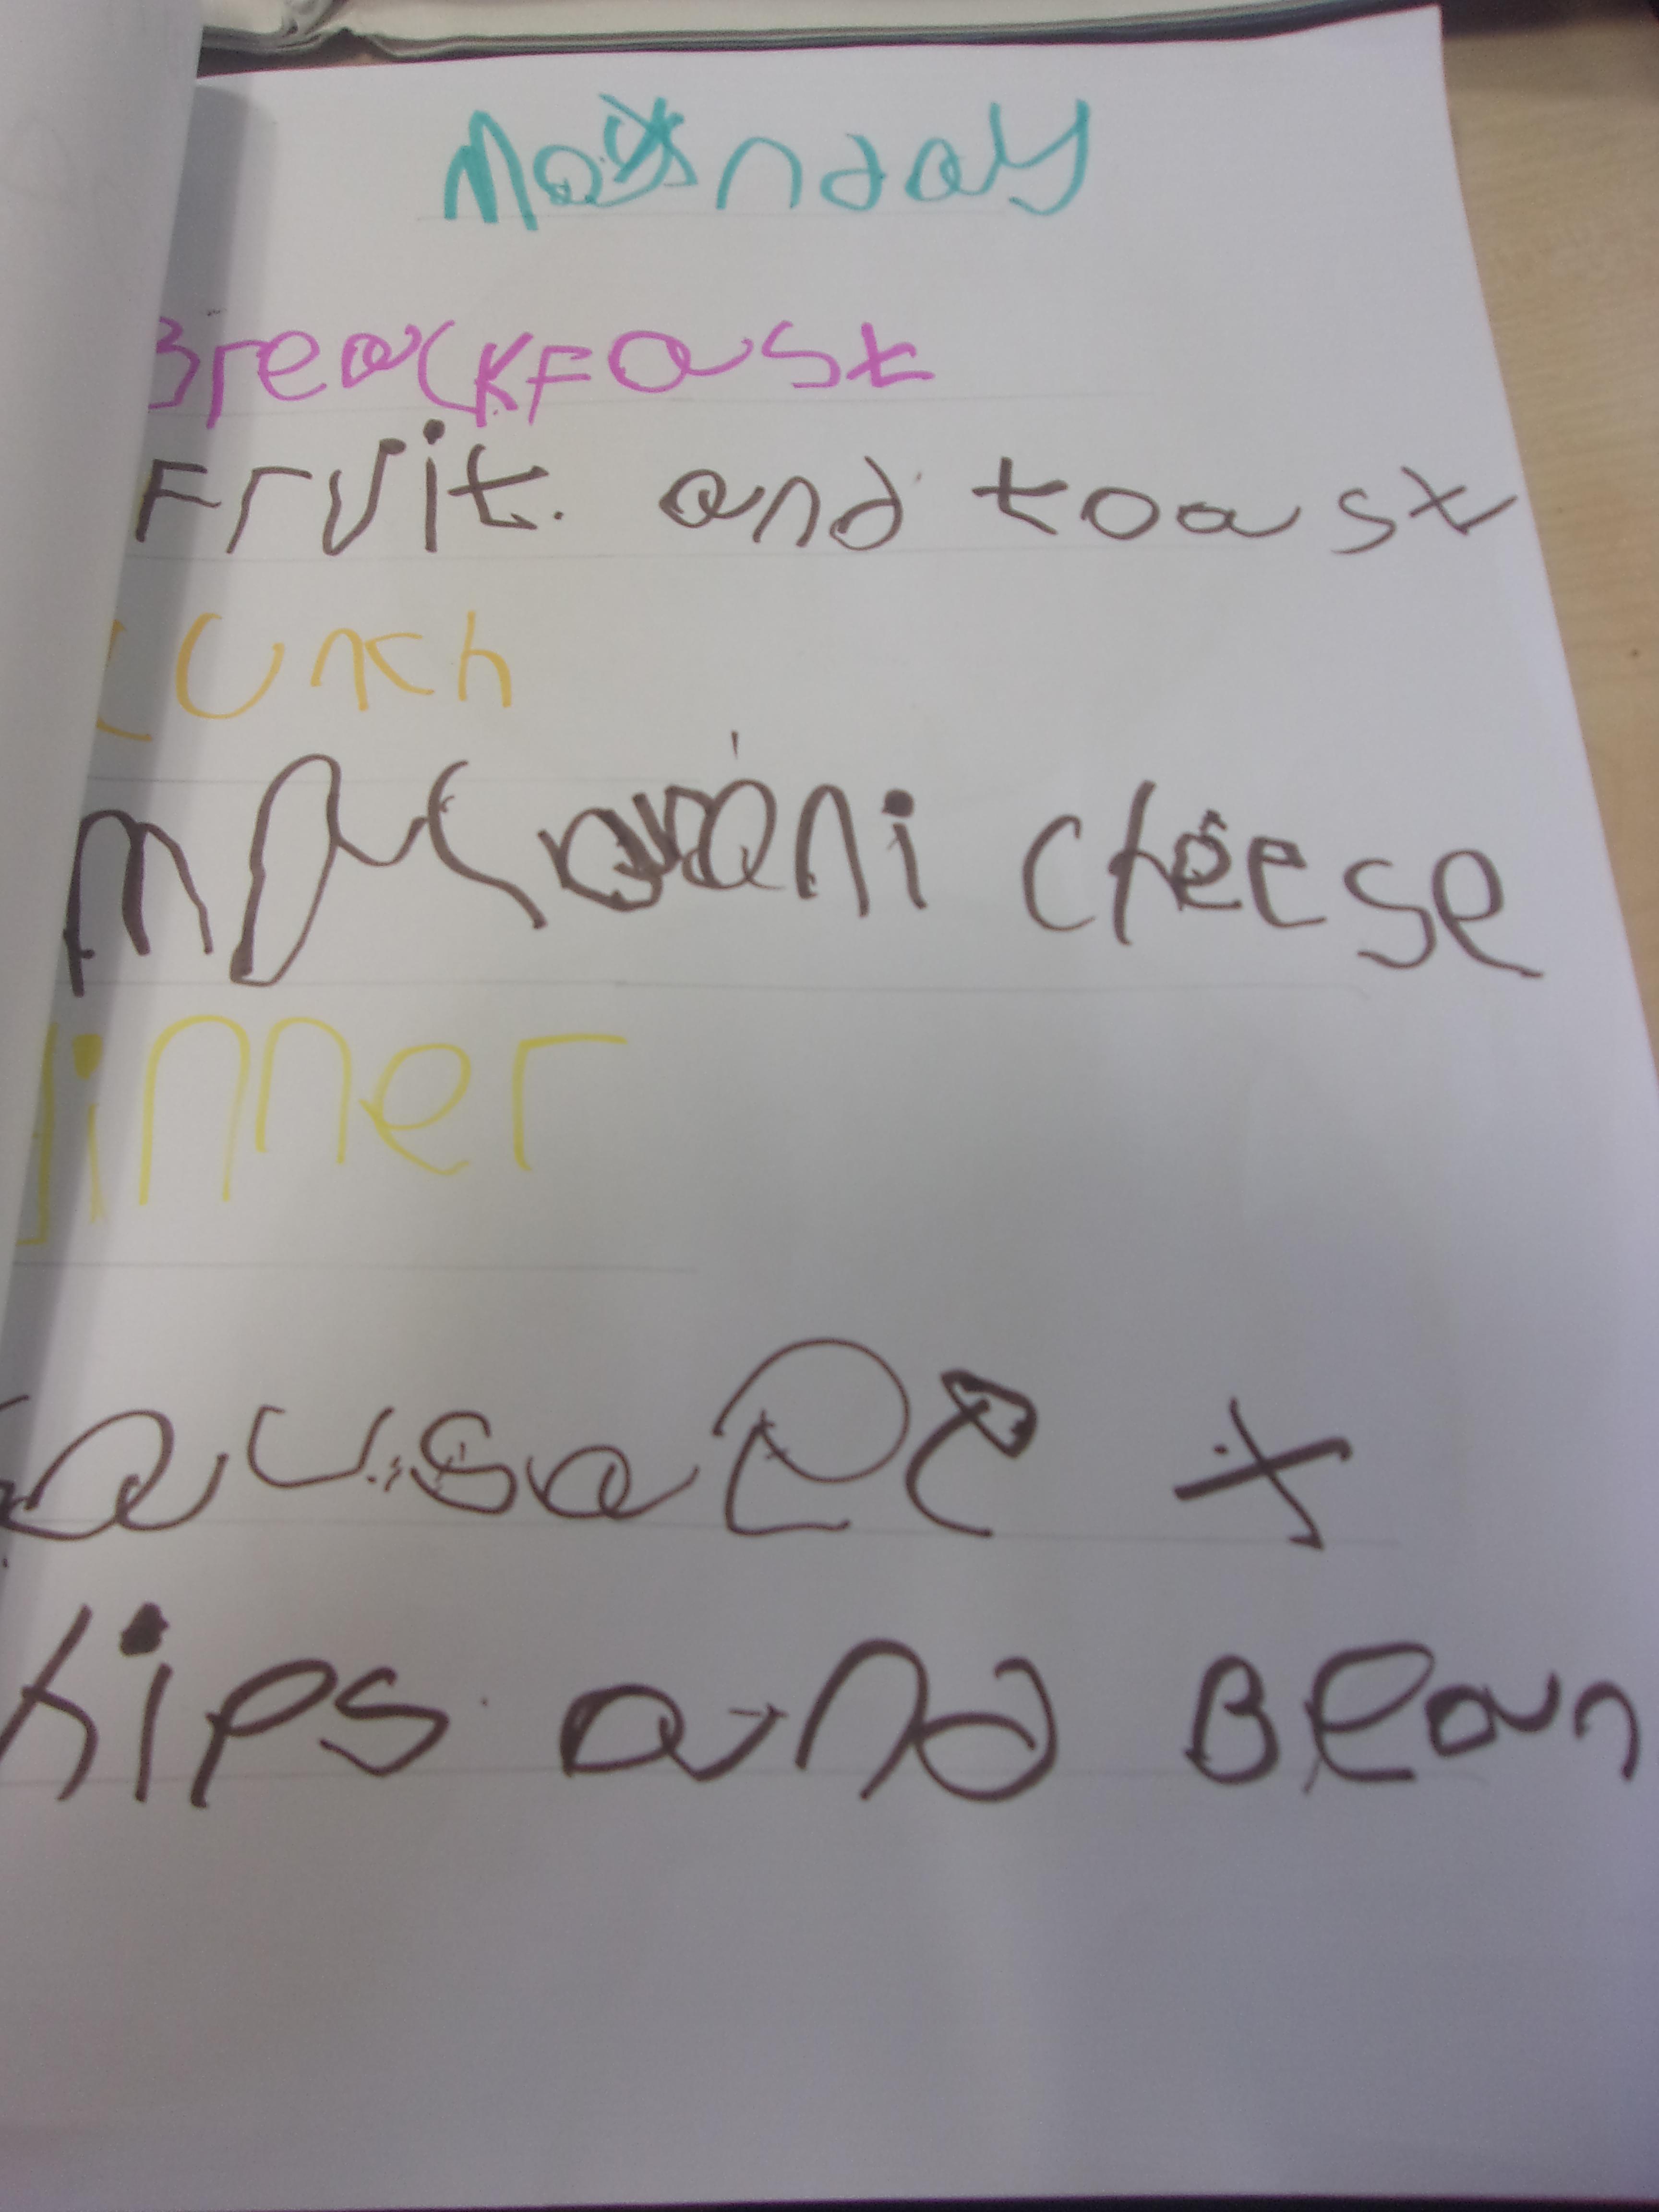 Monday
Breackfast
Fruit. and toast
Lunch
macaroni cheese
dinner
sausage +
hips and Bean